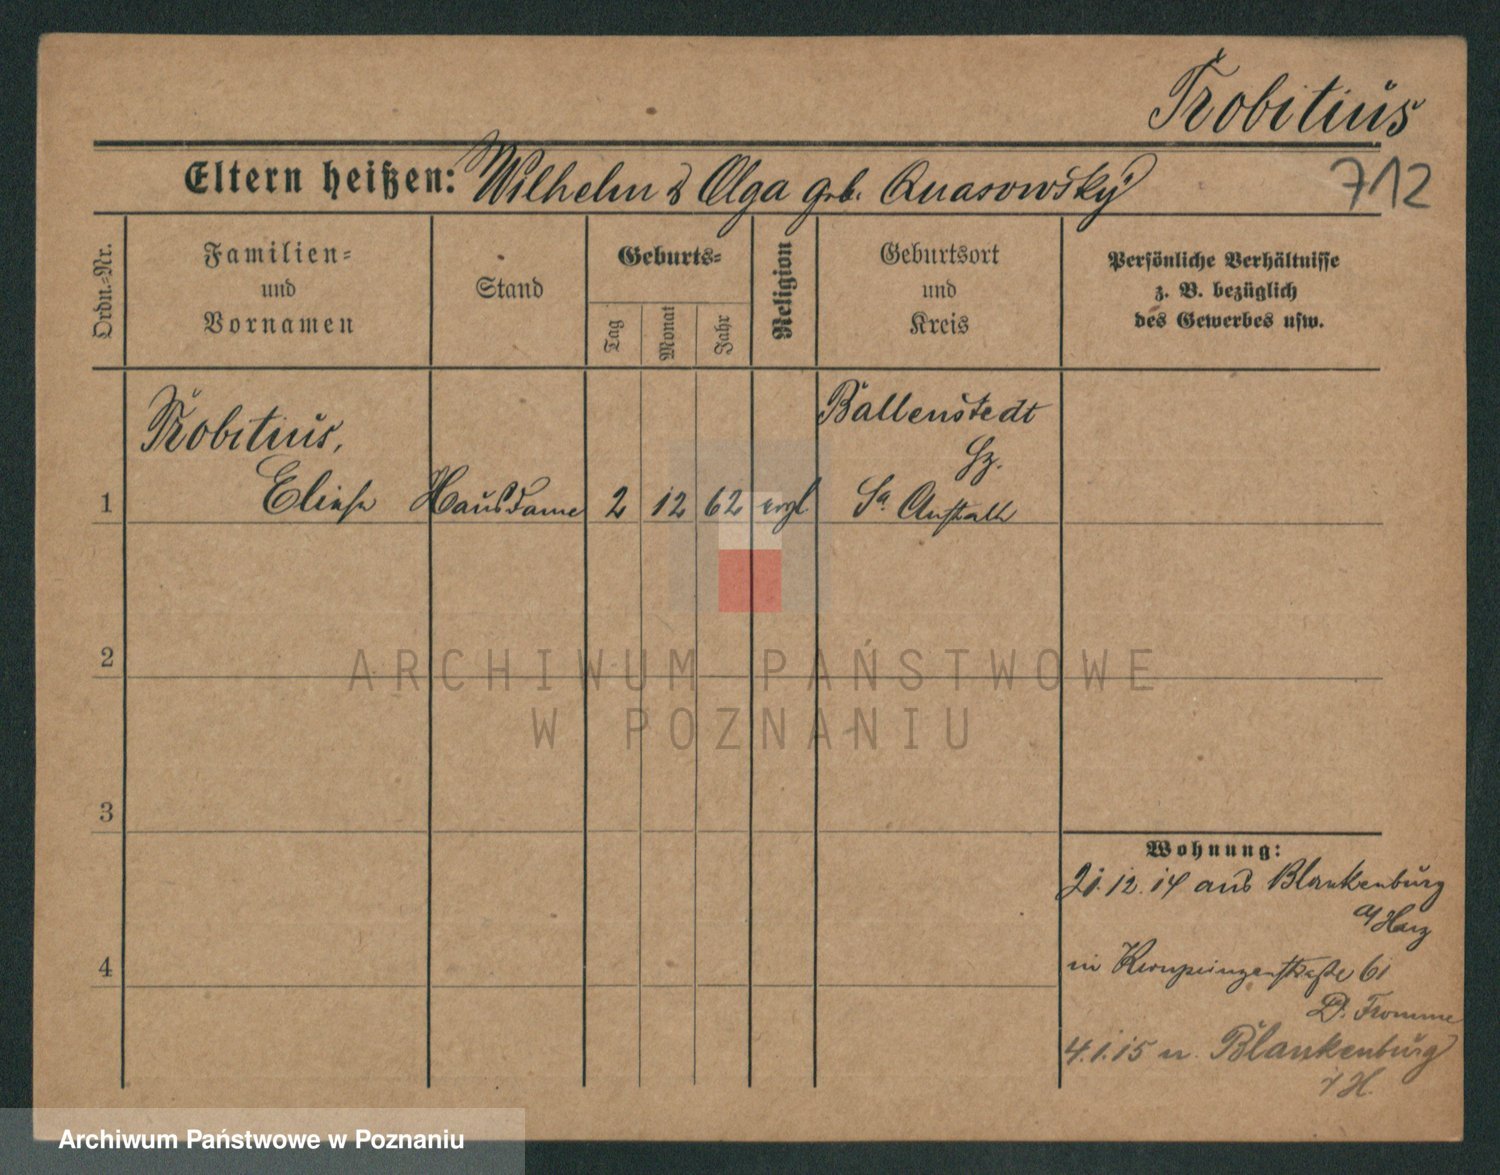 Trobitius
Eltern heißen: Wilhelm & Olga geb. Quasowsky
712
Ordn.=Nr.
Familien=
und
Vornamen
Stand
Geburts=
Tag
Monat
Jahr
Religion
Geburtsort
und
Kreis
Persönliche Verhältnisse
z. B. bezüglich
des Gewerbes usw.
Trobitius,
Ballenstedt
Hz.
1 Eliese Hausdame 2 12 62 evgl Sa Anhalt
2
ARCHIWUM PAŃSTWOWE
W POZNANIU
3
Wohnung:
21.12.14 aus Blankenburg
a/Harz
4
in Kronprinzenstraße 61
D. Fromme
4.1.15 n. Blankenburg
/H.
Archiwum Państwowe w Poznaniu